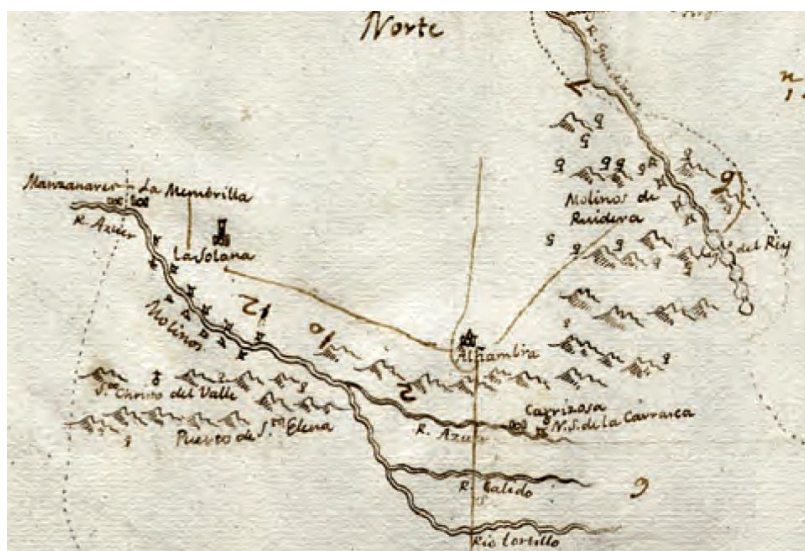 Norte
R. Guadiana
Manzanares
La Membrilla
R. Azuer
La Solana
Molinos de
Ruidera
del Rey
Molinos
Alhambra
S.to Christo del Valle
Puerto de S.ta Elena
Carrizosa
N.S. de la Carrasca
R. Azuer
R. Salido
Rio Tortillo
12
10
2
7
6
9